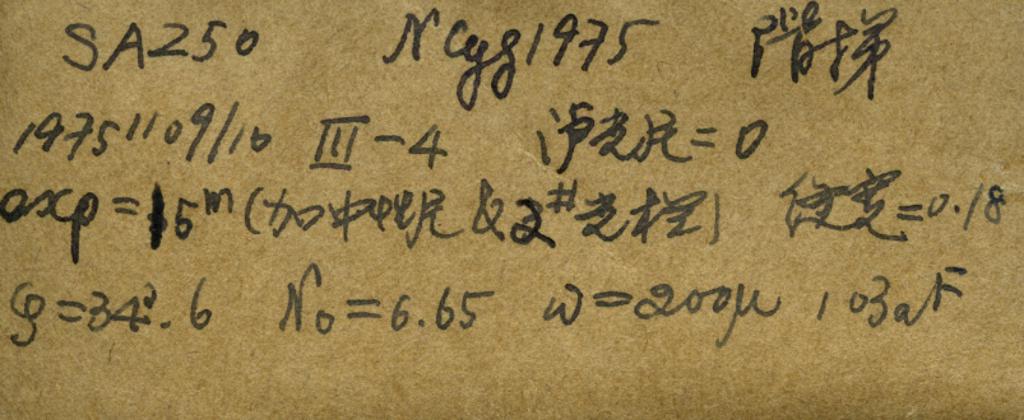 SA250 NCyg1975 阶梯
1975 11 09/10 III-4 滤光片=0
exp=15ᵐ(加中性片&2#光栏) 缝宽=0.18
φ=34°.6 N₀=6.65 ω=200μ 103aF